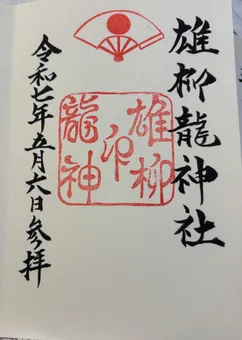 雄柳龍神社
雄柳
印
龍神
令和七年五月六日参拝